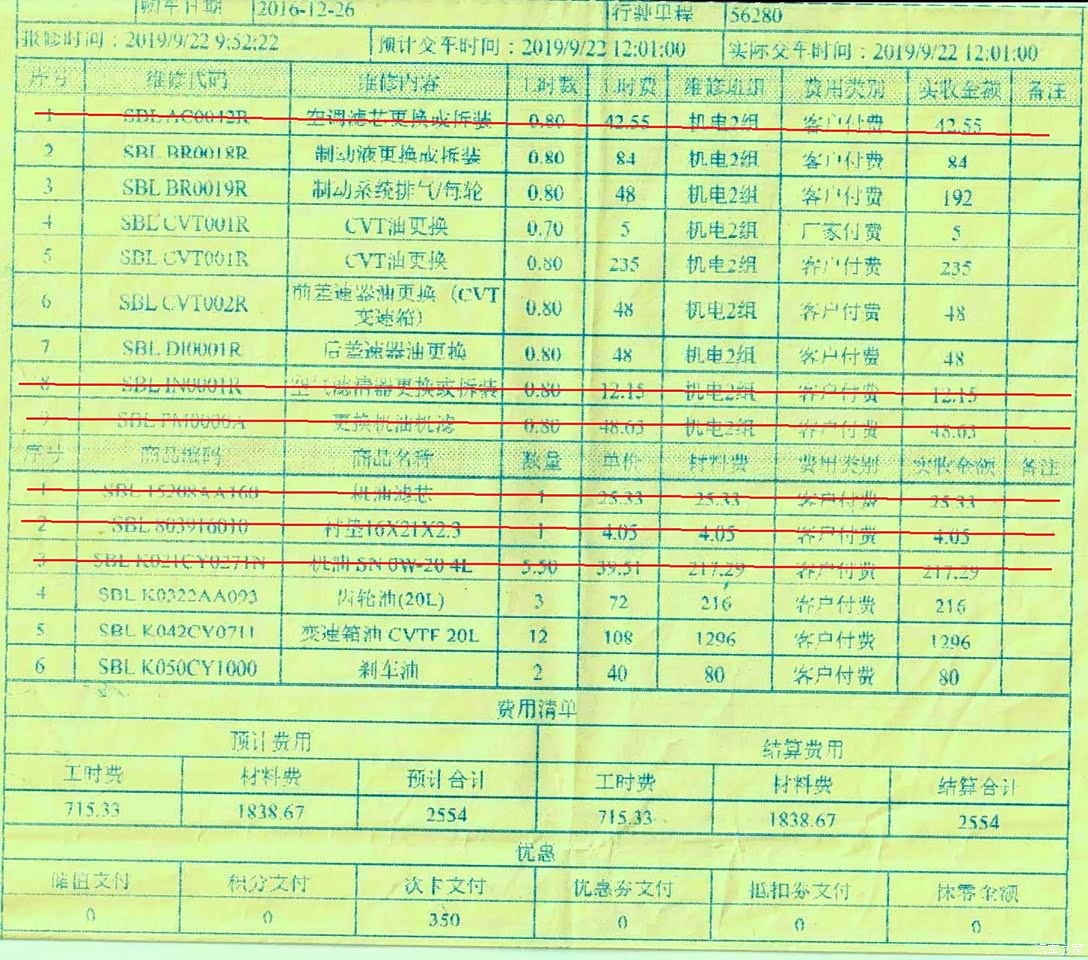 购车日期 2016-12-26 行驶里程 56280
报修时间：2019/9/22 9:52:22 预计交车时间：2019/9/22 12:01:00 实际交车时间：2019/9/22 12:01:00
序号 维修代码 维修内容 工时数 工时费 维修班组 费用类别 实收金额 备注
1 SBL AC0042R 空调滤芯更换或拆装 0.80 42.55 机电2组 客户付费 42.55
2 SBL BR0018R 制动液更换或拆装 0.80 84 机电2组 客户付费 84
3 SBL BR0019R 制动系统排气/每轮 0.80 48 机电2组 客户付费 192
4 SBL CVT001R CVT油更换 0.70 5 机电2组 厂家付费 5
5 SBL CVT001R CVT油更换 0.80 235 机电2组 客户付费 235
6 SBL CVT002R 前差速器油更换（CVT变速箱） 0.80 48 机电2组 客户付费 48
7 SBL DI0001R 后差速器油更换 0.80 48 机电2组 客户付费 48
8 SBL IN0001R 空气滤清器更换或拆装 0.80 12.15 机电2组 客户付费 12.15
9 SBL PM0006A 更换机油机滤 0.80 48.63 机电2组 客户付费 48.63
序号 商品编码 商品名称 数量 单价 材料费 费用类别 实收金额 备注
1 SBL 15208AA160 机油滤芯 1 25.33 25.33 客户付费 25.33
2 SBL 803916010 衬垫16X21X2.3 1 4.05 4.05 客户付费 4.05
3 SBL K021CY0271N 机油 SN 0W-20 4L 5.50 39.51 217.29 客户付费 217.29
4 SBL K0322AA093 齿轮油(20L) 3 72 216 客户付费 216
5 SBL K042CY0711 变速箱油 CVTF 20L 12 108 1296 客户付费 1296
6 SBL K050CY1000 刹车油 2 40 80 客户付费 80
费用清单
预计费用 结算费用
工时费 材料费 预计合计 工时费 材料费 结算合计
715.33 1838.67 2554 715.33 1838.67 2554
优惠
储值支付 积分支付 次卡支付 优惠券支付 抵扣券支付 抹零金额
0 0 350 0 0 0